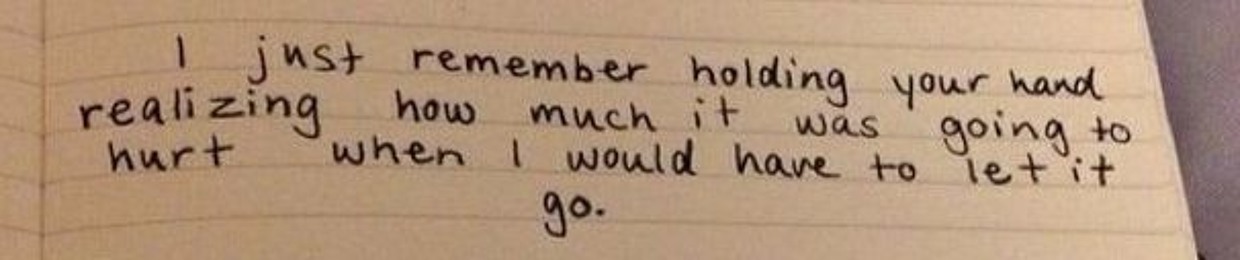 I just remember holding your hand
realizing how much it was going to
hurt when I would have to let it
go.